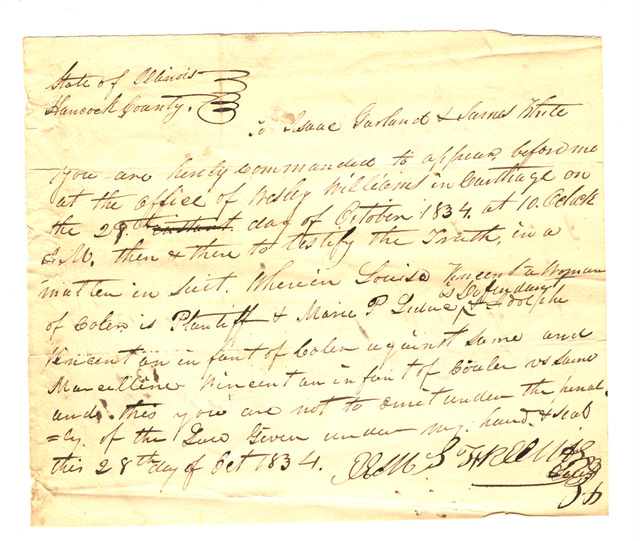 State of Illinois
Hancock County.
To Isaac Garland & James White
You are herely commanded to appear before me
at the office of Wesley Williams in Carthage on
the 29th instant day of October 1834. at 10. Oclock
A.M. then & there to testify the Truth, in a
matter in Suit. Wherein Louisa Vincent a Woman
of Coler is Plantiff & Marie P Leduc is Defendant & Adolphe
Vincent an infant of Coler against same and
Marcelline Vincent an infant of Couler vs same
and this you are not to omit under the penal
=ty of the Law Given under my hand & seal
this 28th day of Oct 1834.